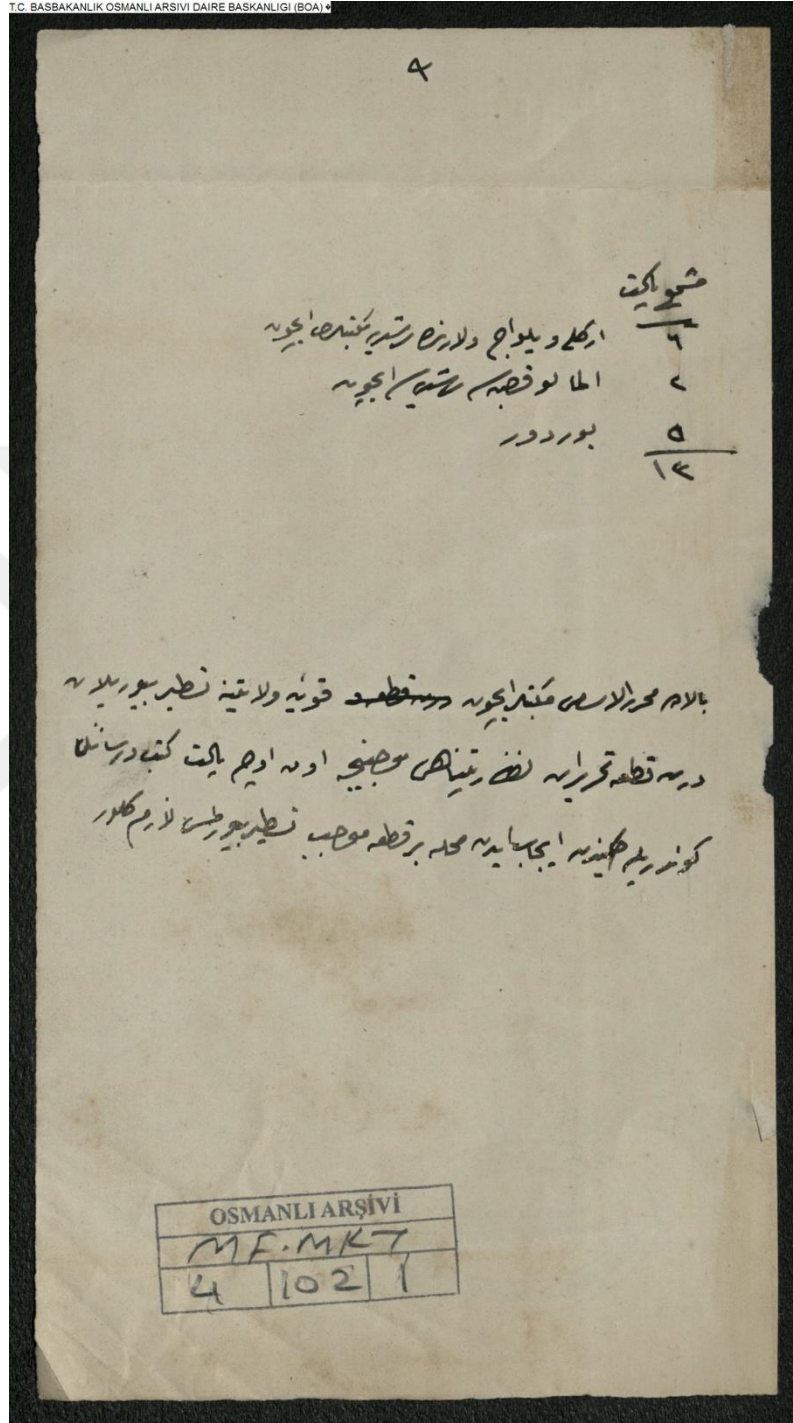 T.C. BASBAKANLIK OSMANLI ARSIVI DAIRE BASKANLIGI (BOA)
مشمع پاكت
٦ اركلی و یلواج ولارنده رشدیه مكتبلری ایچون
٢ المالو قصبه‌سی رشدیه‌سی ایچون
٥ بوردور
١٣
بالاده محرر الاسامی مكتبلر ایچون قونیه ولایتنه تسطیر بیوریلان
درت قطعه تحریرات نظارتپناهی موجبنجه اون اوچ پاكت كتب و رسائل
كوندریله ایجاب ایدن محله بر قطعه تسطیر بیورلمسی لازم كلور
OSMANLI ARŞİVİ
MF.MKT
4 102 1